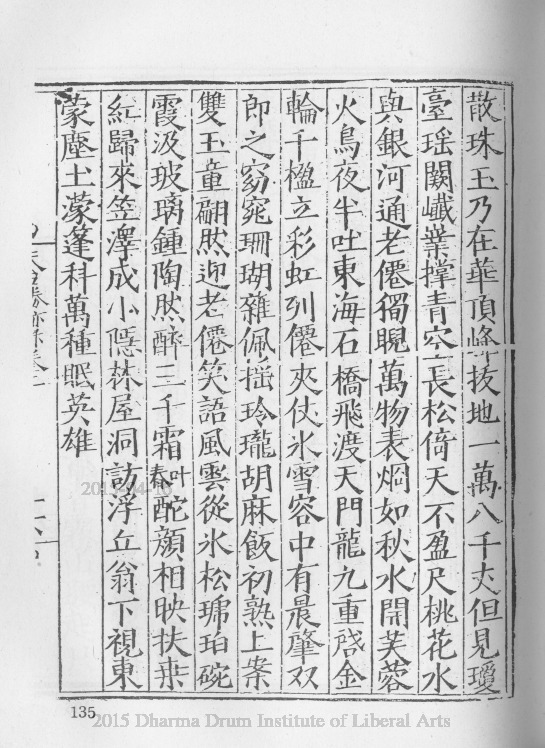 散珠玉乃在華頂峰拔地一萬八千丈但見瓊
臺瑶闕巉㠔撑青空長松倚天不盈尺桃花水
與銀河通老僊獨睨萬物表烱如秋水開芙蓉
火烏夜半吐東海石橋飛渡天門龍九重啓金
輪千楹立彩虹列僊夾仗氷雪容中有晨肇双
郎之窈窕珊瑚雜佩摇玲瓏胡麻飯初熟上案
雙玉童翩然迎老僊笑語風雲從氷松琥珀碗
霞汲玻瓈鍾陶然醉三千霜叶春酡顔相映扶桒
紅歸來笠澤成小隱林屋洞訪浮丘翁下視東
蒙塵土濛篷科萬種眠英雄
135
2015-04-10
2015 Dharma Drum Institute of Liberal Arts